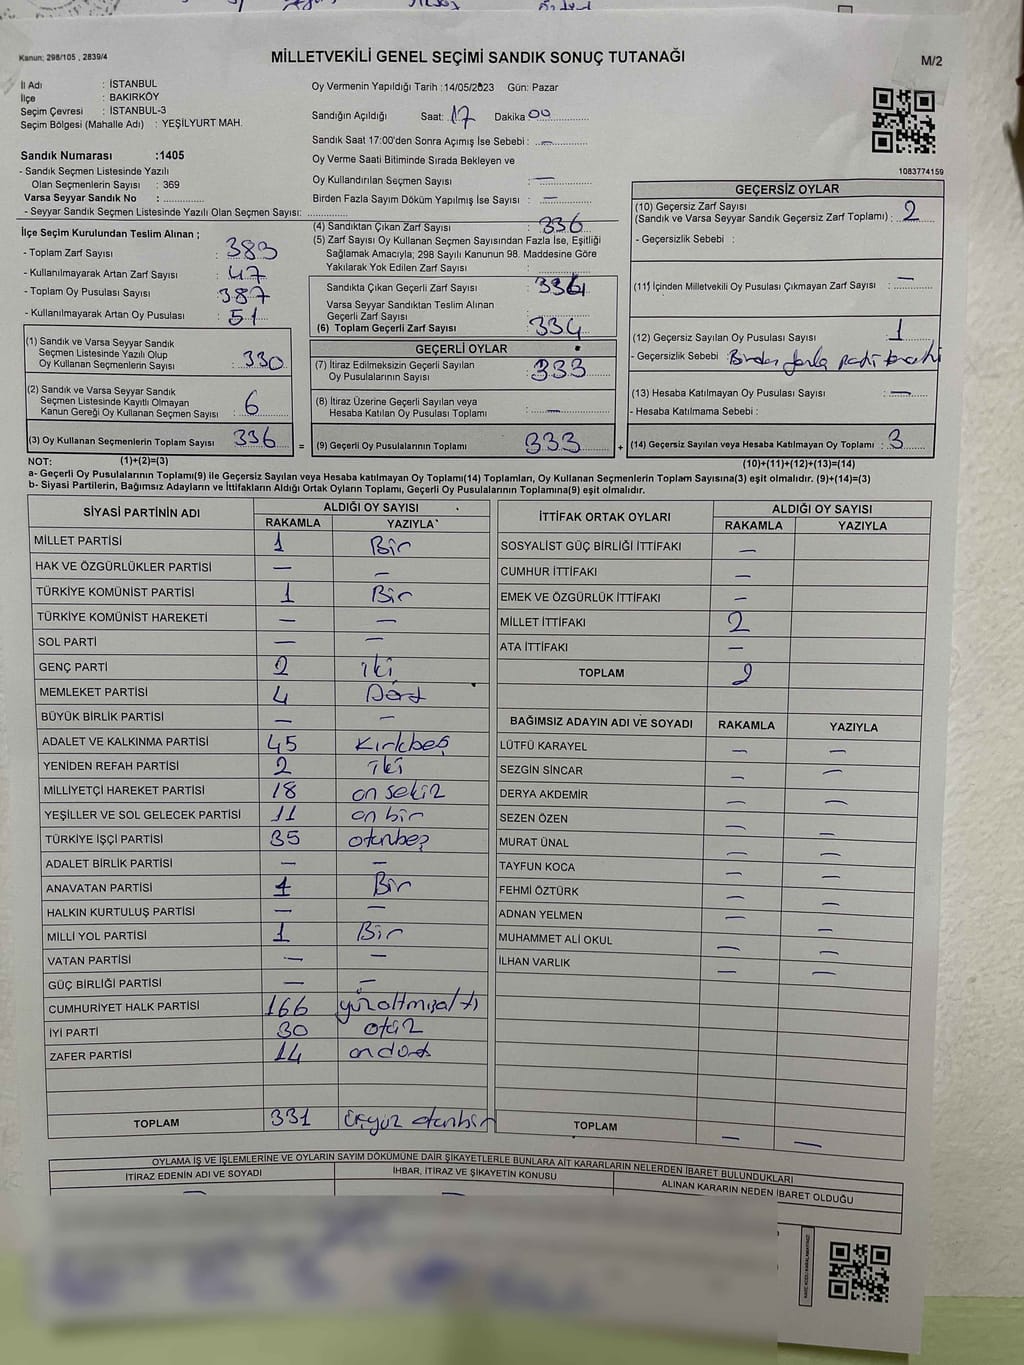 Kanun; 298/105 , 2839/4
MİLLETVEKİLİ GENEL SEÇİMİ SANDIK SONUÇ TUTANAĞI
M/2
İl Adı : İSTANBUL
İlçe : BAKIRKÖY
Seçim Çevresi : İSTANBUL-3
Seçim Bölgesi (Mahalle Adı) : YEŞİLYURT MAH.
Sandık Numarası :1405
- Sandık Seçmen Listesinde Yazılı
Olan Seçmenlerin Sayısı : 369
Varsa Seyyar Sandık No :
- Seyyar Sandık Seçmen Listesinde Yazılı Olan Seçmen Sayısı:
Oy Vermenin Yapıldığı Tarih :14/05/2023 Gün: Pazar
Sandığın Açıldığı Saat: 17 Dakika 00
Sandık Saat 17:00'den Sonra Açımış İse Sebebi : —
Oy Verme Saati Bitiminde Sırada Bekleyen ve
Oy Kullandırılan Seçmen Sayısı : —
Birden Fazla Sayım Döküm Yapılmış İse Sayısı : —
1083774159
İlçe Seçim Kurulundan Teslim Alınan ;
- Toplam Zarf Sayısı : 383
- Kullanılmayarak Artan Zarf Sayısı : 47
- Toplam Oy Pusulası Sayısı : 387
- Kullanılmayarak Artan Oy Pusulası : 51
(1) Sandık ve Varsa Seyyar Sandık
Seçmen Listesinde Yazılı Olup
Oy Kullanan Seçmenlerin Sayısı : 330
(2) Sandık ve Varsa Seyyar Sandık
Seçmen Listesinde Kayıtlı Olmayan
Kanun Gereği Oy Kullanan Seçmen Sayısı : 6
(3) Oy Kullanan Seçmenlerin Toplam Sayısı 336 =
(4) Sandıktan Çıkan Zarf Sayısı : 336
(5) Zarf Sayısı Oy Kullanan Seçmen Sayısından Fazla İse, Eşitliği
Sağlamak Amacıyla; 298 Sayılı Kanunun 98. Maddesine Göre
Yakılarak Yok Edilen Zarf Sayısı :
Sandıkta Çıkan Geçerli Zarf Sayısı : 334
Varsa Seyyar Sandıktan Teslim Alınan
Geçerli Zarf Sayısı :
(6) Toplam Geçerli Zarf Sayısı : 334
GEÇERLİ OYLAR
(7) İtiraz Edilmeksizin Geçerli Sayılan
Oy Pusulalarının Sayısı : 333
(8) İtiraz Üzerine Geçerli Sayılan veya
Hesaba Katılan Oy Pusulası Toplamı : —
(9) Geçerli Oy Pusulalarının Toplamı 333 +
GEÇERSİZ OYLAR
(10) Geçersiz Zarf Sayısı
(Sandık ve Varsa Seyyar Sandık Geçersiz Zarf Toplamı) : 2
- Geçersizlik Sebebi :
(11) İçinden Milletvekili Oy Pusulası Çıkmayan Zarf Sayısı : —
(12) Geçersiz Sayılan Oy Pusulası Sayısı : 1
- Geçersizlik Sebebi : Birden fazla parti
(13) Hesaba Katılmayan Oy Pusulası Sayısı : —
- Hesaba Katılmama Sebebi :
(14) Geçersiz Sayılan veya Hesaba Katılmayan Oy Toplamı : 3
NOT: (1)+(2)=(3) (10)+(11)+(12)+(13)=(14)
a- Geçerli Oy Pusulalarının Toplamı(9) ile Geçersiz Sayılan veya Hesaba katılmayan Oy Toplamı(14) Toplamları, Oy Kullanan Seçmenlerin Toplam Sayısına(3) eşit olmalıdır. (9)+(14)=(3)
b- Siyasi Partilerin, Bağımsız Adayların ve İttifakların Aldığı Ortak Oyların Toplamı, Geçerli Oy Pusulalarının Toplamına(9) eşit olmalıdır.
SİYASİ PARTİNİN ADI ALDIĞI OY SAYISI
RAKAMLA YAZIYLA
MİLLET PARTİSİ 1 Bir
HAK VE ÖZGÜRLÜKLER PARTİSİ — —
TÜRKİYE KOMÜNİST PARTİSİ 1 Bir
TÜRKİYE KOMÜNİST HAREKETİ — —
SOL PARTİ — —
GENÇ PARTİ 2 iki
MEMLEKET PARTİSİ 4 Dört
BÜYÜK BİRLİK PARTİSİ — —
ADALET VE KALKINMA PARTİSİ 45 Kırkbeş
YENİDEN REFAH PARTİSİ 2 iki
MİLLİYETÇİ HAREKET PARTİSİ 18 on sekiz
YEŞİLLER VE SOL GELECEK PARTİSİ 11 on bir
TÜRKİYE İŞÇİ PARTİSİ 35 otuzbeş
ADALET BİRLİK PARTİSİ — —
ANAVATAN PARTİSİ 1 Bir
HALKIN KURTULUŞ PARTİSİ — —
MİLLİ YOL PARTİSİ 1 Bir
VATAN PARTİSİ — —
GÜÇ BİRLİĞİ PARTİSİ — —
CUMHURİYET HALK PARTİSİ 166 yüzaltmışaltı
İYİ PARTİ 30 otuz
ZAFER PARTİSİ 14 ondört
TOPLAM 331 üçyüz otuzbir
İTTİFAK ORTAK OYLARI ALDIĞI OY SAYISI
RAKAMLA YAZIYLA
SOSYALİST GÜÇ BİRLİĞİ İTTİFAKI —
CUMHUR İTTİFAKI —
EMEK VE ÖZGÜRLÜK İTTİFAKI —
MİLLET İTTİFAKI 2
ATA İTTİFAKI —
TOPLAM 2
BAĞIMSIZ ADAYIN ADI VE SOYADI RAKAMLA YAZIYLA
LÜTFÜ KARAYEL — —
SEZGİN SİNCAR — —
DERYA AKDEMİR — —
SEZEN ÖZEN — —
MURAT ÜNAL — —
TAYFUN KOCA — —
FEHMİ ÖZTÜRK — —
ADNAN YELMEN — —
MUHAMMET ALİ OKUL — —
İLHAN VARLIK — —
TOPLAM — —
OYLAMA İŞ VE İŞLEMLERİNE VE OYLARIN SAYIM DÖKÜMÜNE DAİR ŞİKAYETLERLE BUNLARA AİT KARARLARIN NELERDEN İBARET BULUNDUKLARI
İTİRAZ EDENİN ADI VE SOYADI İHBAR, İTİRAZ VE ŞİKAYETİN KONUSU ALINAN KARARIN NEDEN İBARET OLDUĞU
— —